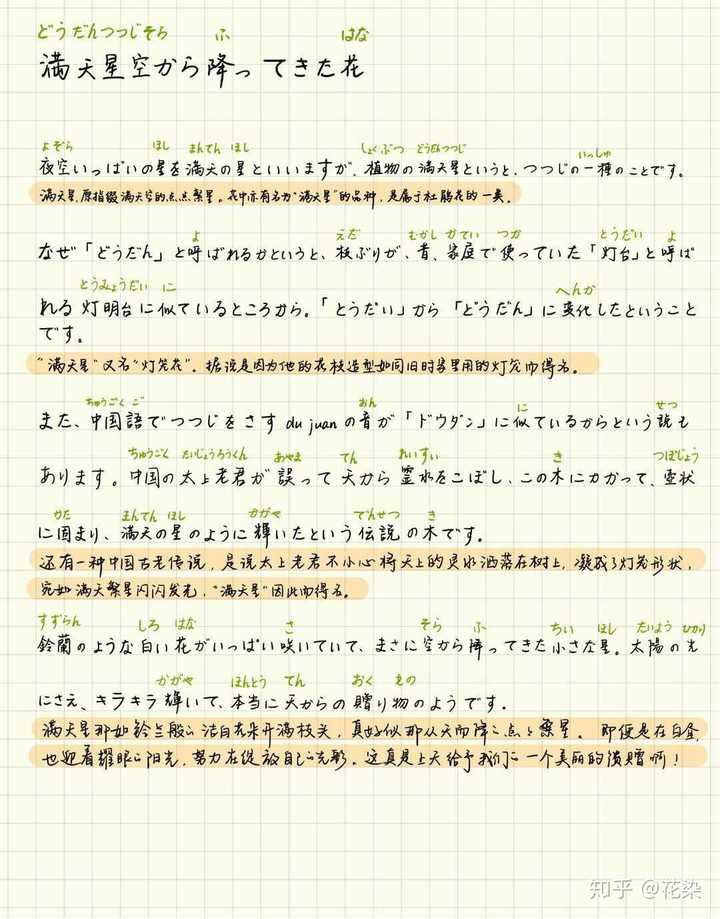 どうだんつつじそら ふ はな
満天星空から降ってきた花
よぞら ほし まんてん ほし しょくぶつ どうだんつつじ いっしゅ
夜空いっぱいの星を満天の星といいますが、植物の満天星というと、つつじの一種のことです。
满天星,原指缀满天空的点点繁星。花中亦有名为“满天星”的品种,是属于杜鹃花的一类。
よ えだ むかし かてい つか とうだい よ
なぜ「どうだん」と呼ばれるかというと、枝ぶりが、昔、家庭で使っていた「灯台」と呼ば
とうみょうだい に へんか
れる灯明台に似ているところから。「とうだい」から「どうだん」に変化したということ
です。
“满天星”又名“灯笼花”。据说是因为他的花枝造型如同旧时家里用的灯笼而得名。
ちゅうごくご おん に せつ
また、中国語でつつじをさす du juan の音が「ドウダン」に似ているからという説も
ちゅうごく たいじょうろうくん あやま てん れいすい き つぼじょう
あります。中国の太上老君が誤って天から霊水をこぼし、この木にかかって、壺状
かた まんてん ほし かがや でんせつ き
に固まり、満天の星のように輝いたという伝説の木です。
还有一种中国古老传说,是说太上老君不小心将天上的灵水洒落在树上,凝成了灯笼形状,
宛如满天繁星闪闪发光,“满天星”因此而得名。
すずらん しろ はな さ そら ふ ちい ほし たいよう ひかり
鈴蘭のような白い花がいっぱい咲いていて、まさに空から降ってきた小さな星。太陽の光
かがや ほんとう てん おく もの
にさえ、キラキラ輝いて、本当に天からの贈り物のようです。
满天星那如铃兰般的洁白花朵开满枝头,真好似那从天而降的点点繁星。即便是在白昼,
也迎着耀眼的阳光,努力在绽放自己的光彩。这真是上天给予我们的一个美丽的馈赠啊!
知乎 @花染